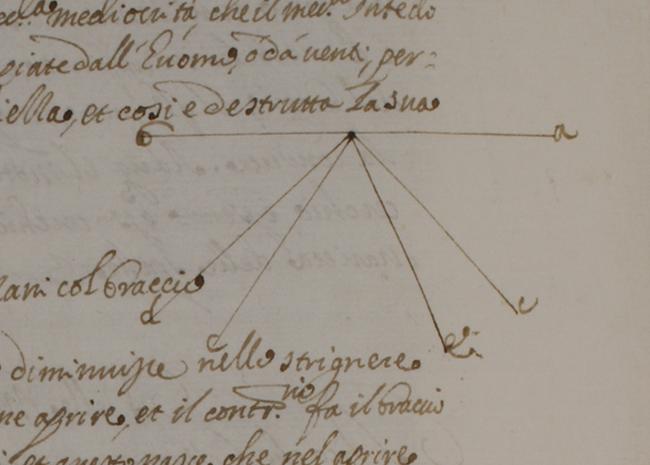 mediocrità, che il med.º Intedo
piate dall' Euomo, o da' venti, per=
iella, et cosi e destrutta La sua
b a
lani col braccio
d c
e
diminuisce nello strignere
ne aprire, et il contr.rio fa il braccio
et questo nasce, che nel aprire